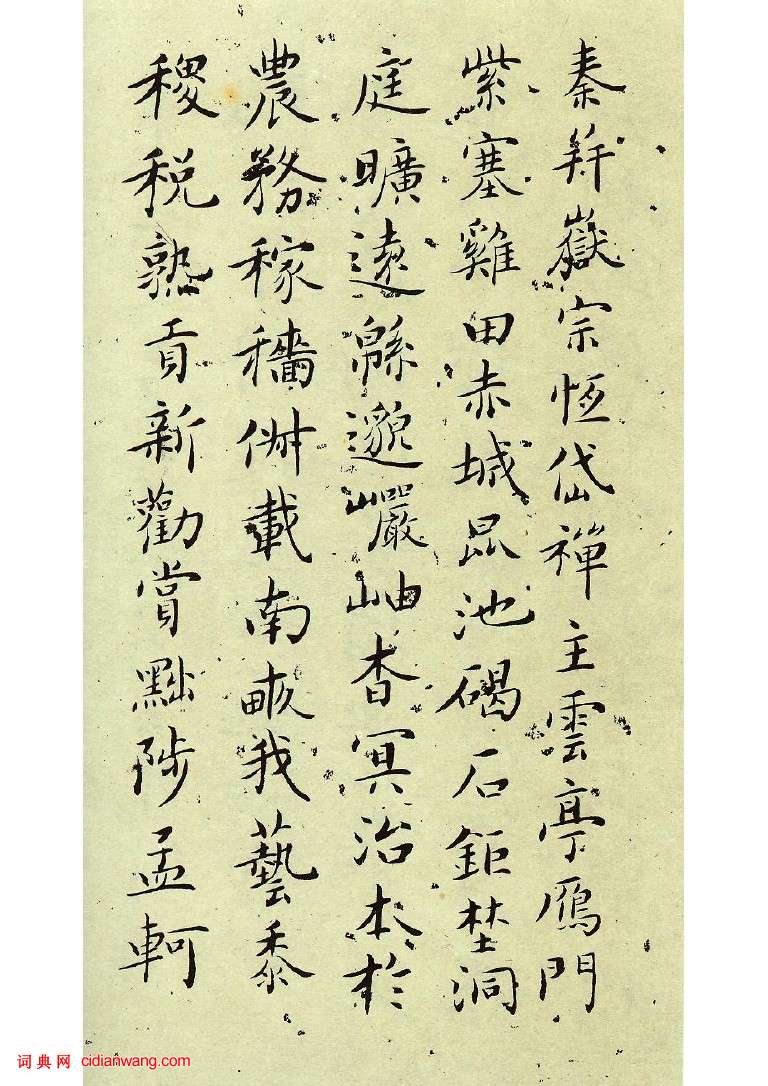 秦并嶽宗恆岱禪主雲亭雁門
紫塞雞田赤城昆池碣石鉅埜洞
庭曠遠緜邈巖岫杳冥治本於
農務稼穡俶載南畝我藝黍
稷稅熟貢新勸賞黜陟孟軻
词典网 cidianwang.com